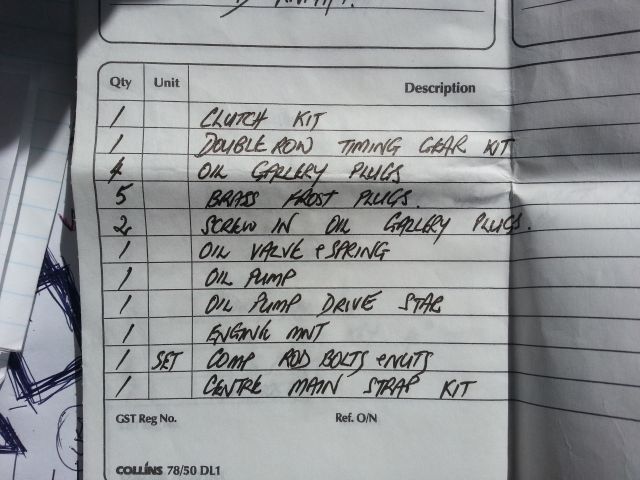 Qty Unit Description
1 CLUTCH KIT
1 DOUBLE ROW TIMING GEAR KIT
4 OIL GALLERY PLUGS
5 BRASS FROST PLUGS.
2 SCREW IN OIL GALLERY PLUGS.
1 OIL VALVE & SPRING
1 OIL PUMP
1 OIL PUMP DRIVE STAB
1 ENGINE MNT
1 SET COMP ROD BOLTS & NUTS
1 CENTRE MAIN STRAP KIT
GST Reg No. Ref. O/N
COLLINS 78/50 DL1